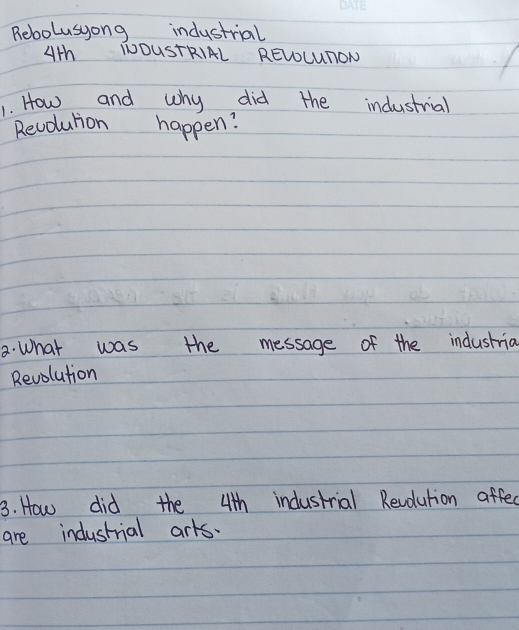 DATE
Rebolusyong industrial
4th INDUSTRIAL REVOLUTION
1. How and why did the industrial
Revolution happen?
2. What was the message of the industria
Revolution
3. How did the 4th industrial Revolution affec
are industrial arts.